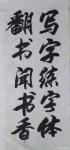 写字练字体
翻书闻书香